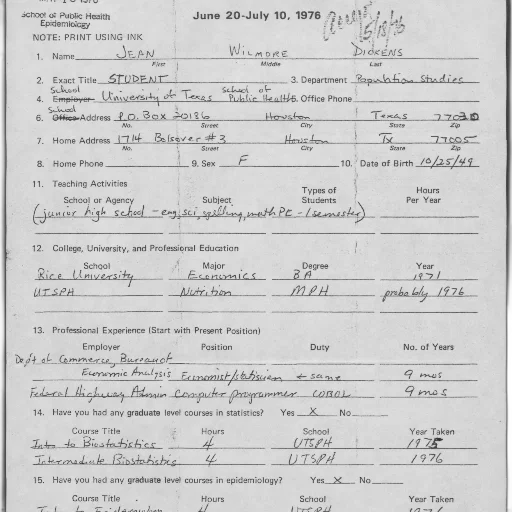 School of Public Health
Epidemiology
June 20-July 10, 1976
5/18/76
NOTE: PRINT USING INK
1. Name JEAN WILMORE DICKENS
First Middle Last
2. Exact Title STUDENT 3. Department Population Studies
School school of
4. Employer University of Texas Public Health 5. Office Phone
School
6. Office Address P.O. Box 20186 Houston Texas 77030
No. Street City State Zip
7. Home Address 1714 Bolsover #3 Houston Tx 77005
No. Street City State Zip
8. Home Phone 9. Sex F 10. Date of Birth 10/25/49
11. Teaching Activities
School or Agency Subject Types of Students Hours Per Year
(junior high school - eng, sci, spelling, math, PE - 1 semester)
12. College, University, and Professional Education
School Major Degree Year
Rice University Economics BA 1971
UTSPH Nutrition MPH probably 1976
13. Professional Experience (Start with Present Position)
Employer Position Duty No. of Years
Dept of Commerce, Bureau of
Economic Analysis Economist/statistician ← same 9 mos
Federal Highway Admin Computer programmer COBOL 9 mos
14. Have you had any graduate level courses in statistics? Yes X No
Course Title Hours School Year Taken
Intro to Biostatistics 4 UTSPH 1975
Intermediate Biostatistics 4 UTSPH 1976
15. Have you had any graduate level courses in epidemiology? Yes X No
Course Title Hours School Year Taken